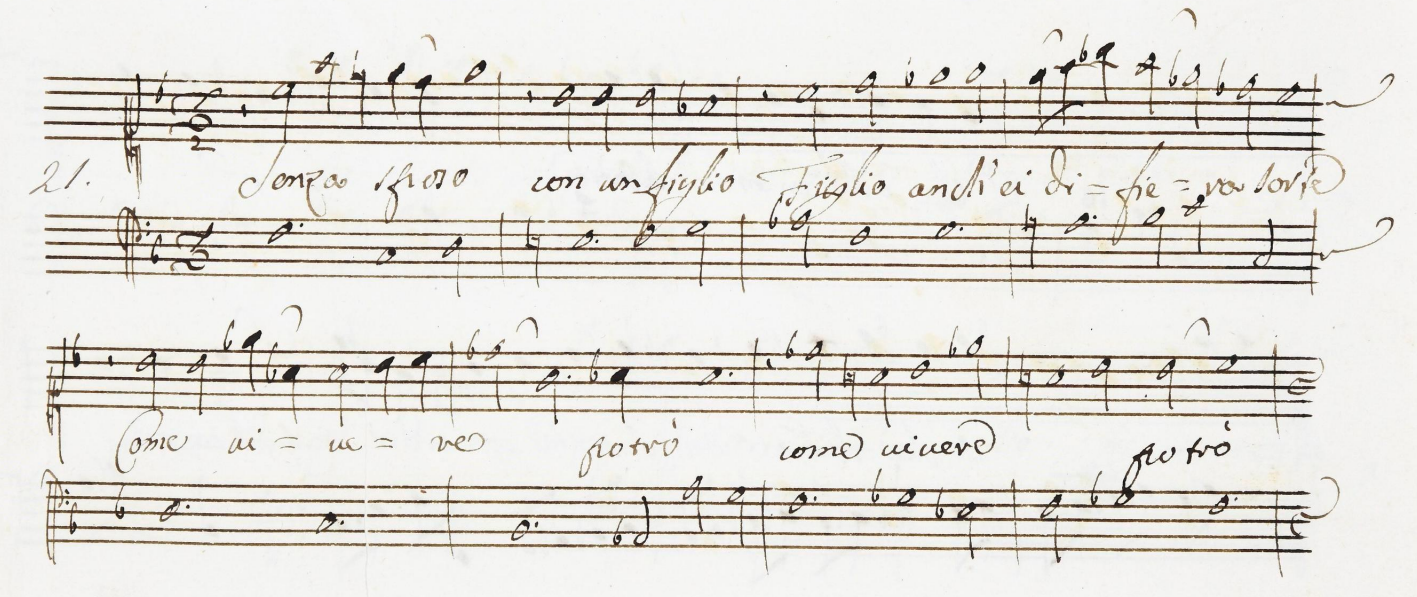 21. Senza sposo con un figlio Figlio anch'ei di = fie = ra sorte
Come vi = ve = re potrò come vivere potrò